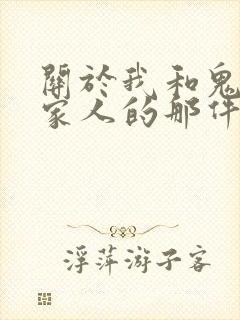 關於我和鬼
家人的那件
浮萍游子客